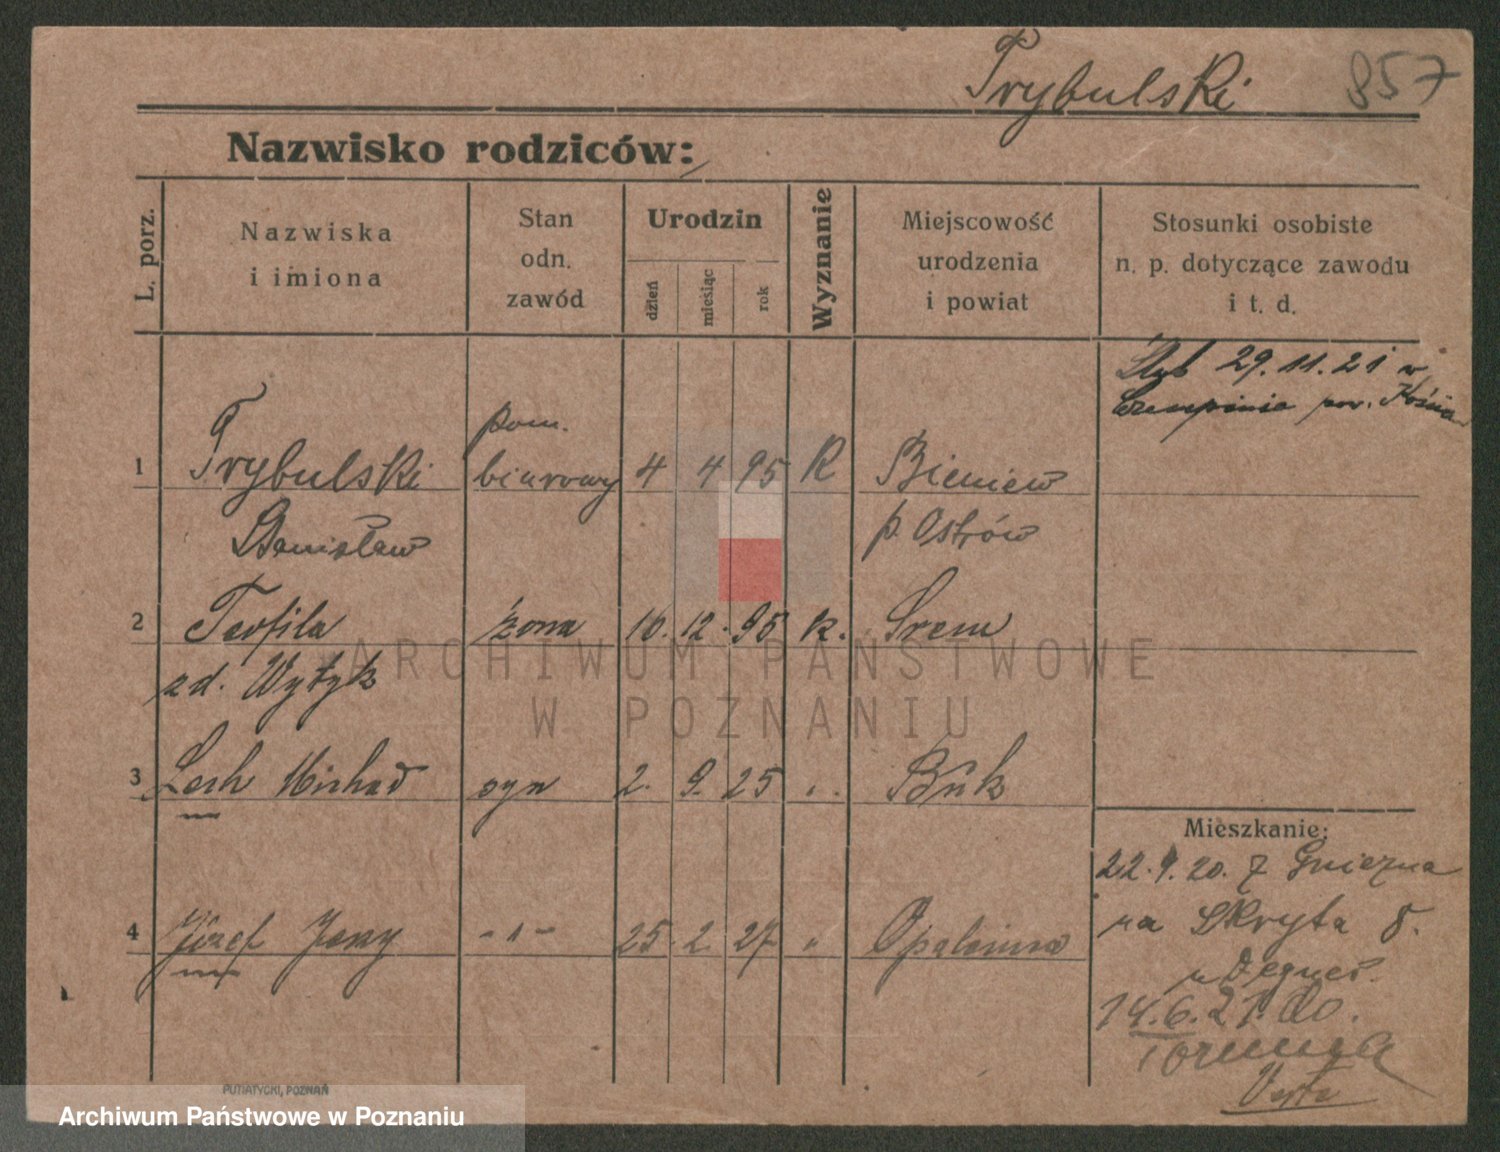 Trybulski 857
Nazwisko rodziców:
L. porz.
Nazwiska
i imiona
Stan
odn.
zawód
Urodzin
dzień
miesiąc
rok
Wyznanie
Miejscowość
urodzenia
i powiat
Stosunki osobiste
n. p. dotyczące zawodu
i t. d.
29. 11. 21 w
pow.
pom.
1 Trybulski biurowy 4 4 95 R Bieniew
Stanisław p. Ostrów
2 Teofila żona 10. 12. 95 k. Srem
zd. Wytyk
3 Lech Michał syn 2. 9. 25 " Buk
Mieszkanie:
22. 9. 20. z Gniezna
4 Józef Jerzy -"- 25 2 27 " Opalenica
na Skryta 8.
14. 6. 21. do
ARCHIWUM PAŃSTWOWE
W POZNANIU
PUTIATYCKI, POZNAŃ
Archiwum Państwowe w Poznaniu